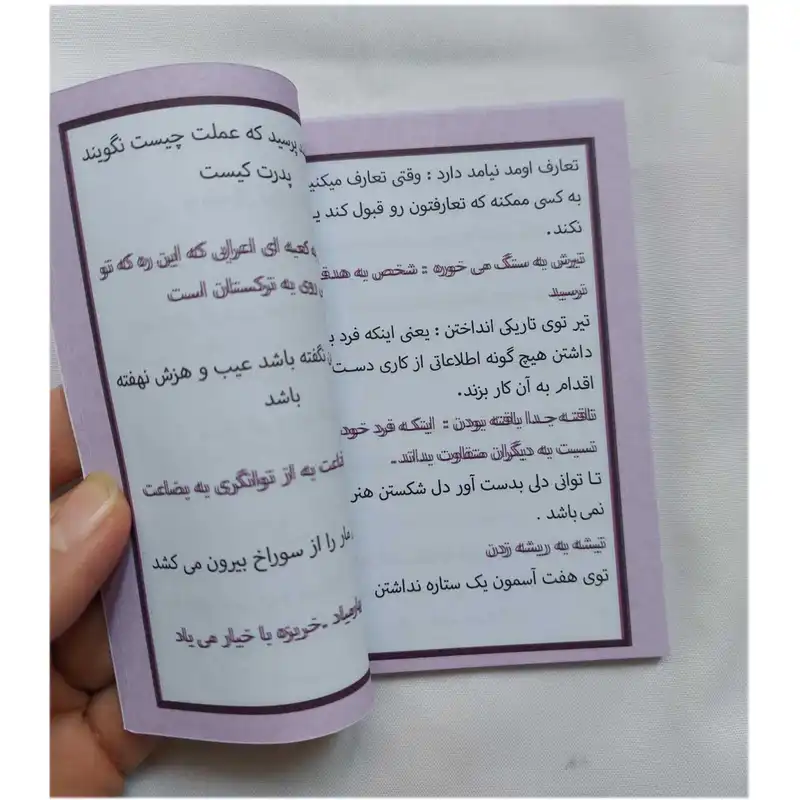 تعارف اومد نیامد دارد : وقتی تعارف میکنی
به کسی ممکنه که تعارفتون رو قبول کند یـ
نکند .
تیرش به سنگ می خوره : شخص به هدفـ
نرسید
تیر توی تاریکی انداختن : یعنی اینکه فرد بـ
داشتن هیچ گونه اطلاعاتی از کاری دسـت
اقدام به آن کار بزند.
تافته جدا بافته بودن : اینکه فرد خود
نسبت به دیگران متفاوت بداند.
تا توانی دلی بدست آور دل شکستن هنر
نمی باشد .
تیشه به ریشه زدن
توی هفت آسمون یک ستاره نداشتن
پرسید که عملت چیست نگویند
پدرت کیست
کعبه ای اعرابی که این ره که تو
روی به ترکستان است
نگفته باشد عیب و هزش نهفته
باشد
به از توانگری به بضاعت
مار را از سوراخ بیرون می کشد
خربزه با خیار می یاد